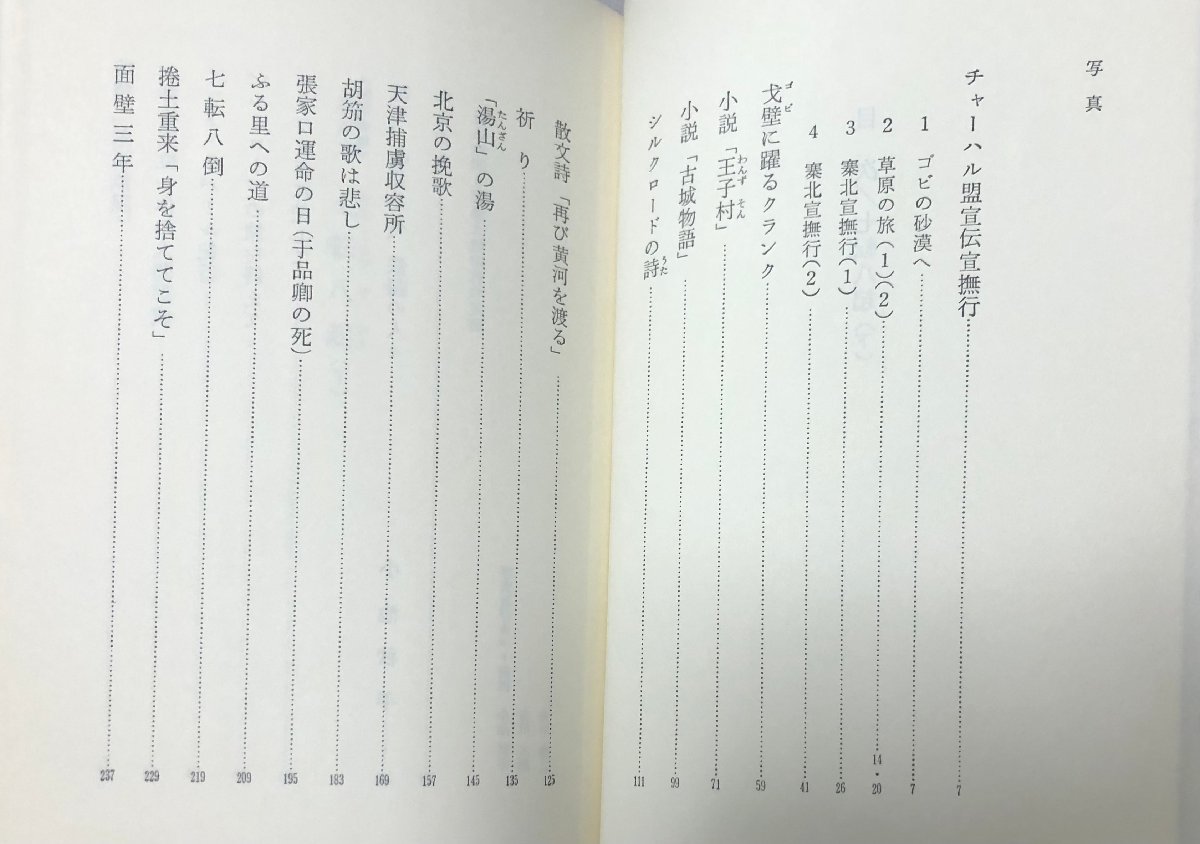 写真
チャーハル盟宣伝宣撫行……7
1 ゴビの砂漠へ……7
2 草原の旅(1)(2)……14・20
3 寨北宣撫行(1)……26
4 寨北宣撫行(2)……41
戈壁に躍るクランク……59
小説「王子村」……71
小説「古城物語」……99
シルクロードの詩……111
散文詩「再び黄河を渡る」……125
祈り……135
「湯山」の湯……145
北京の挽歌……157
天津捕虜収容所……169
胡笳の歌は悲し……183
張家口運命の日(于品卿の死)……195
ふる里への道……209
七転八倒……219
捲土重来「身を捨ててこそ」……229
面壁三年……237